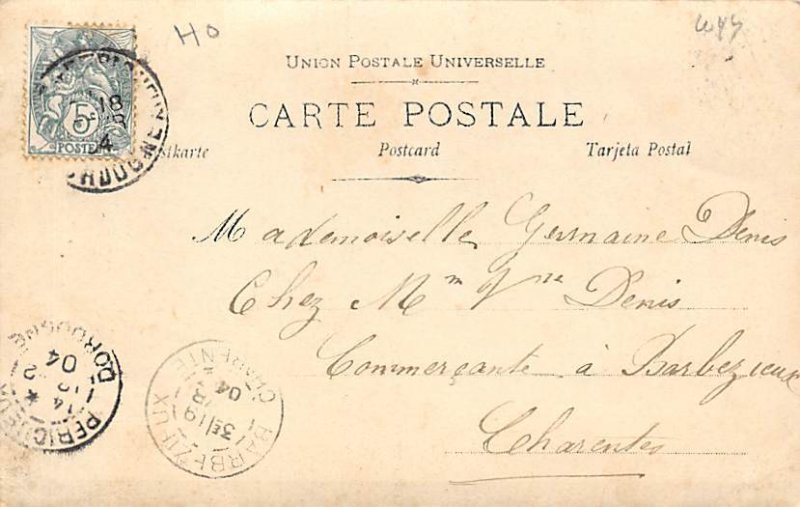 HO
UNION POSTALE UNIVERSELLE
CARTE POSTALE
stkarte Postcard Tarjeta Postal
5
POSTES
18
04
Mademoiselle Germaine Denis
Chez Mm Vve Denis
Commerçante à Barbezieux
Charentes
DORDOGNE
04
PERIGUEUX
BARBEZIEUX
CHARENTE
3E/19
04